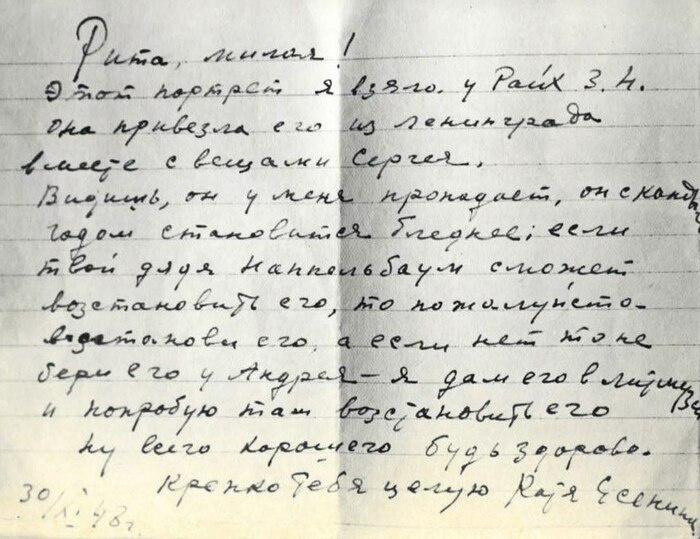 Рита, милая!
Этот портрет я взяла у Райх З. Н.
она привезла его из Ленинграда
вместе с вещами Сергея.
Видишь, он у меня пропадает, он с кажд
годом становится бледнее; если
твой дядя Наппельбаум сможет
возстановить его, то пожалуйста
возстанови его, а если нет то не
бери его у Андрея – я дам его в
и попробую там возстановить его
ну всего хорошего будь здорова.
Крепко Тебя целую Катя Есенина
30/XI 48 г.